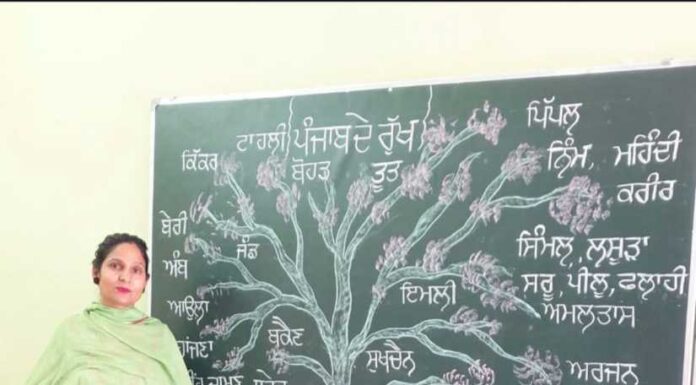 ਪੰਜਾਬ ਦੇ ਰੁੱਖ
ਟਾਹਲੀ
ਪਿੱਪਲ
ਕਿੱਕਰ
ਬੋਹੜ
ਤੂਤ
ਨਿੰਮ, ਮਹਿੰਦੀ
ਕਰੀਰ
ਬੇਰੀ
ਜੰਡ
ਅੰਬ
ਸਿੰਮਲ, ਲਸੂੜਾ
ਸਰੂ, ਪੀਲੂ, ਫਲਾਹੀ
ਇਮਲੀ
ਔਲਾ
ਅਮਲਤਾਸ
ਬਕੈਣ
ਸੁਖਚੈਨ
ਅਰਜਨ
ਜਾਮਣ